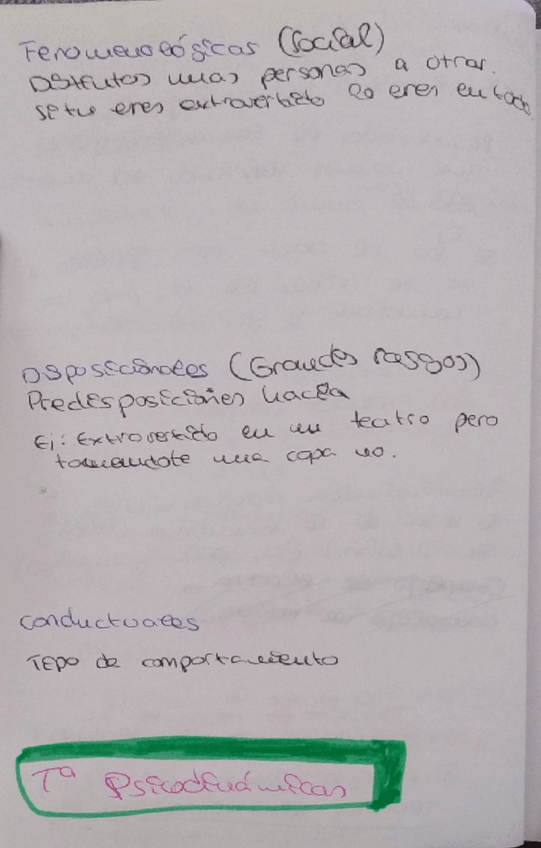 Fenomenológicas (Social)
Distintos unas personas a otras.
si tu eres extrovertido lo eres en todo.
Disposicionales (Grandes rasgos)
Predisposiciones hacia
Ej: Extrovertido en un teatro pero
tomandote una copa no.
Conductuales
Tipo de comportamiento
Tª Psicodinámicas